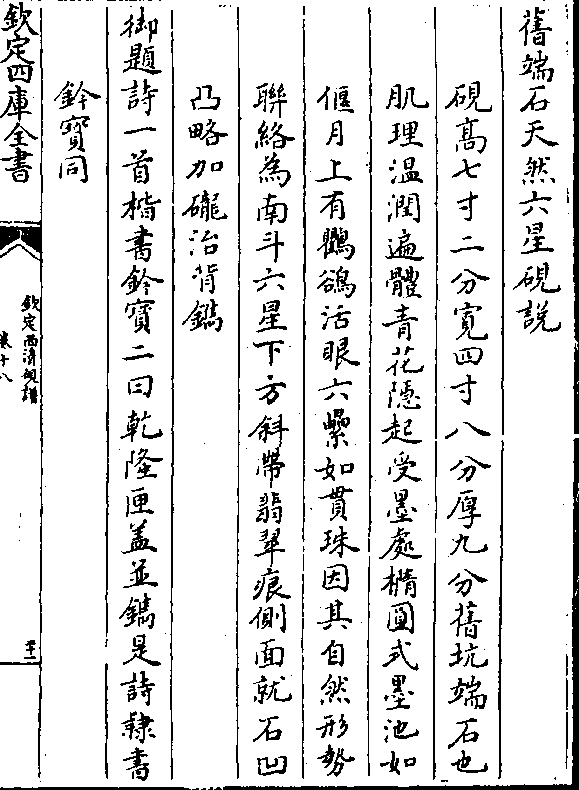 舊端石天然六星硯説
硯髙七寸二分寛四寸八分厚九分舊坑端石也
肌理温潤遍體青花隱起受墨處橢圓式墨池如
偃月上有鸜鵒活眼六纍如貫珠因其自然形勢
聯絡為南斗六星下方斜帶翡翠痕側面就石凹
凸略加礲治背鐫
御題詩一首楷書鈐寳二曰乾隆匣葢並鐫是詩隷書
鈐寳同
欽定四庫全書
欽定西清硯譜
卷十八